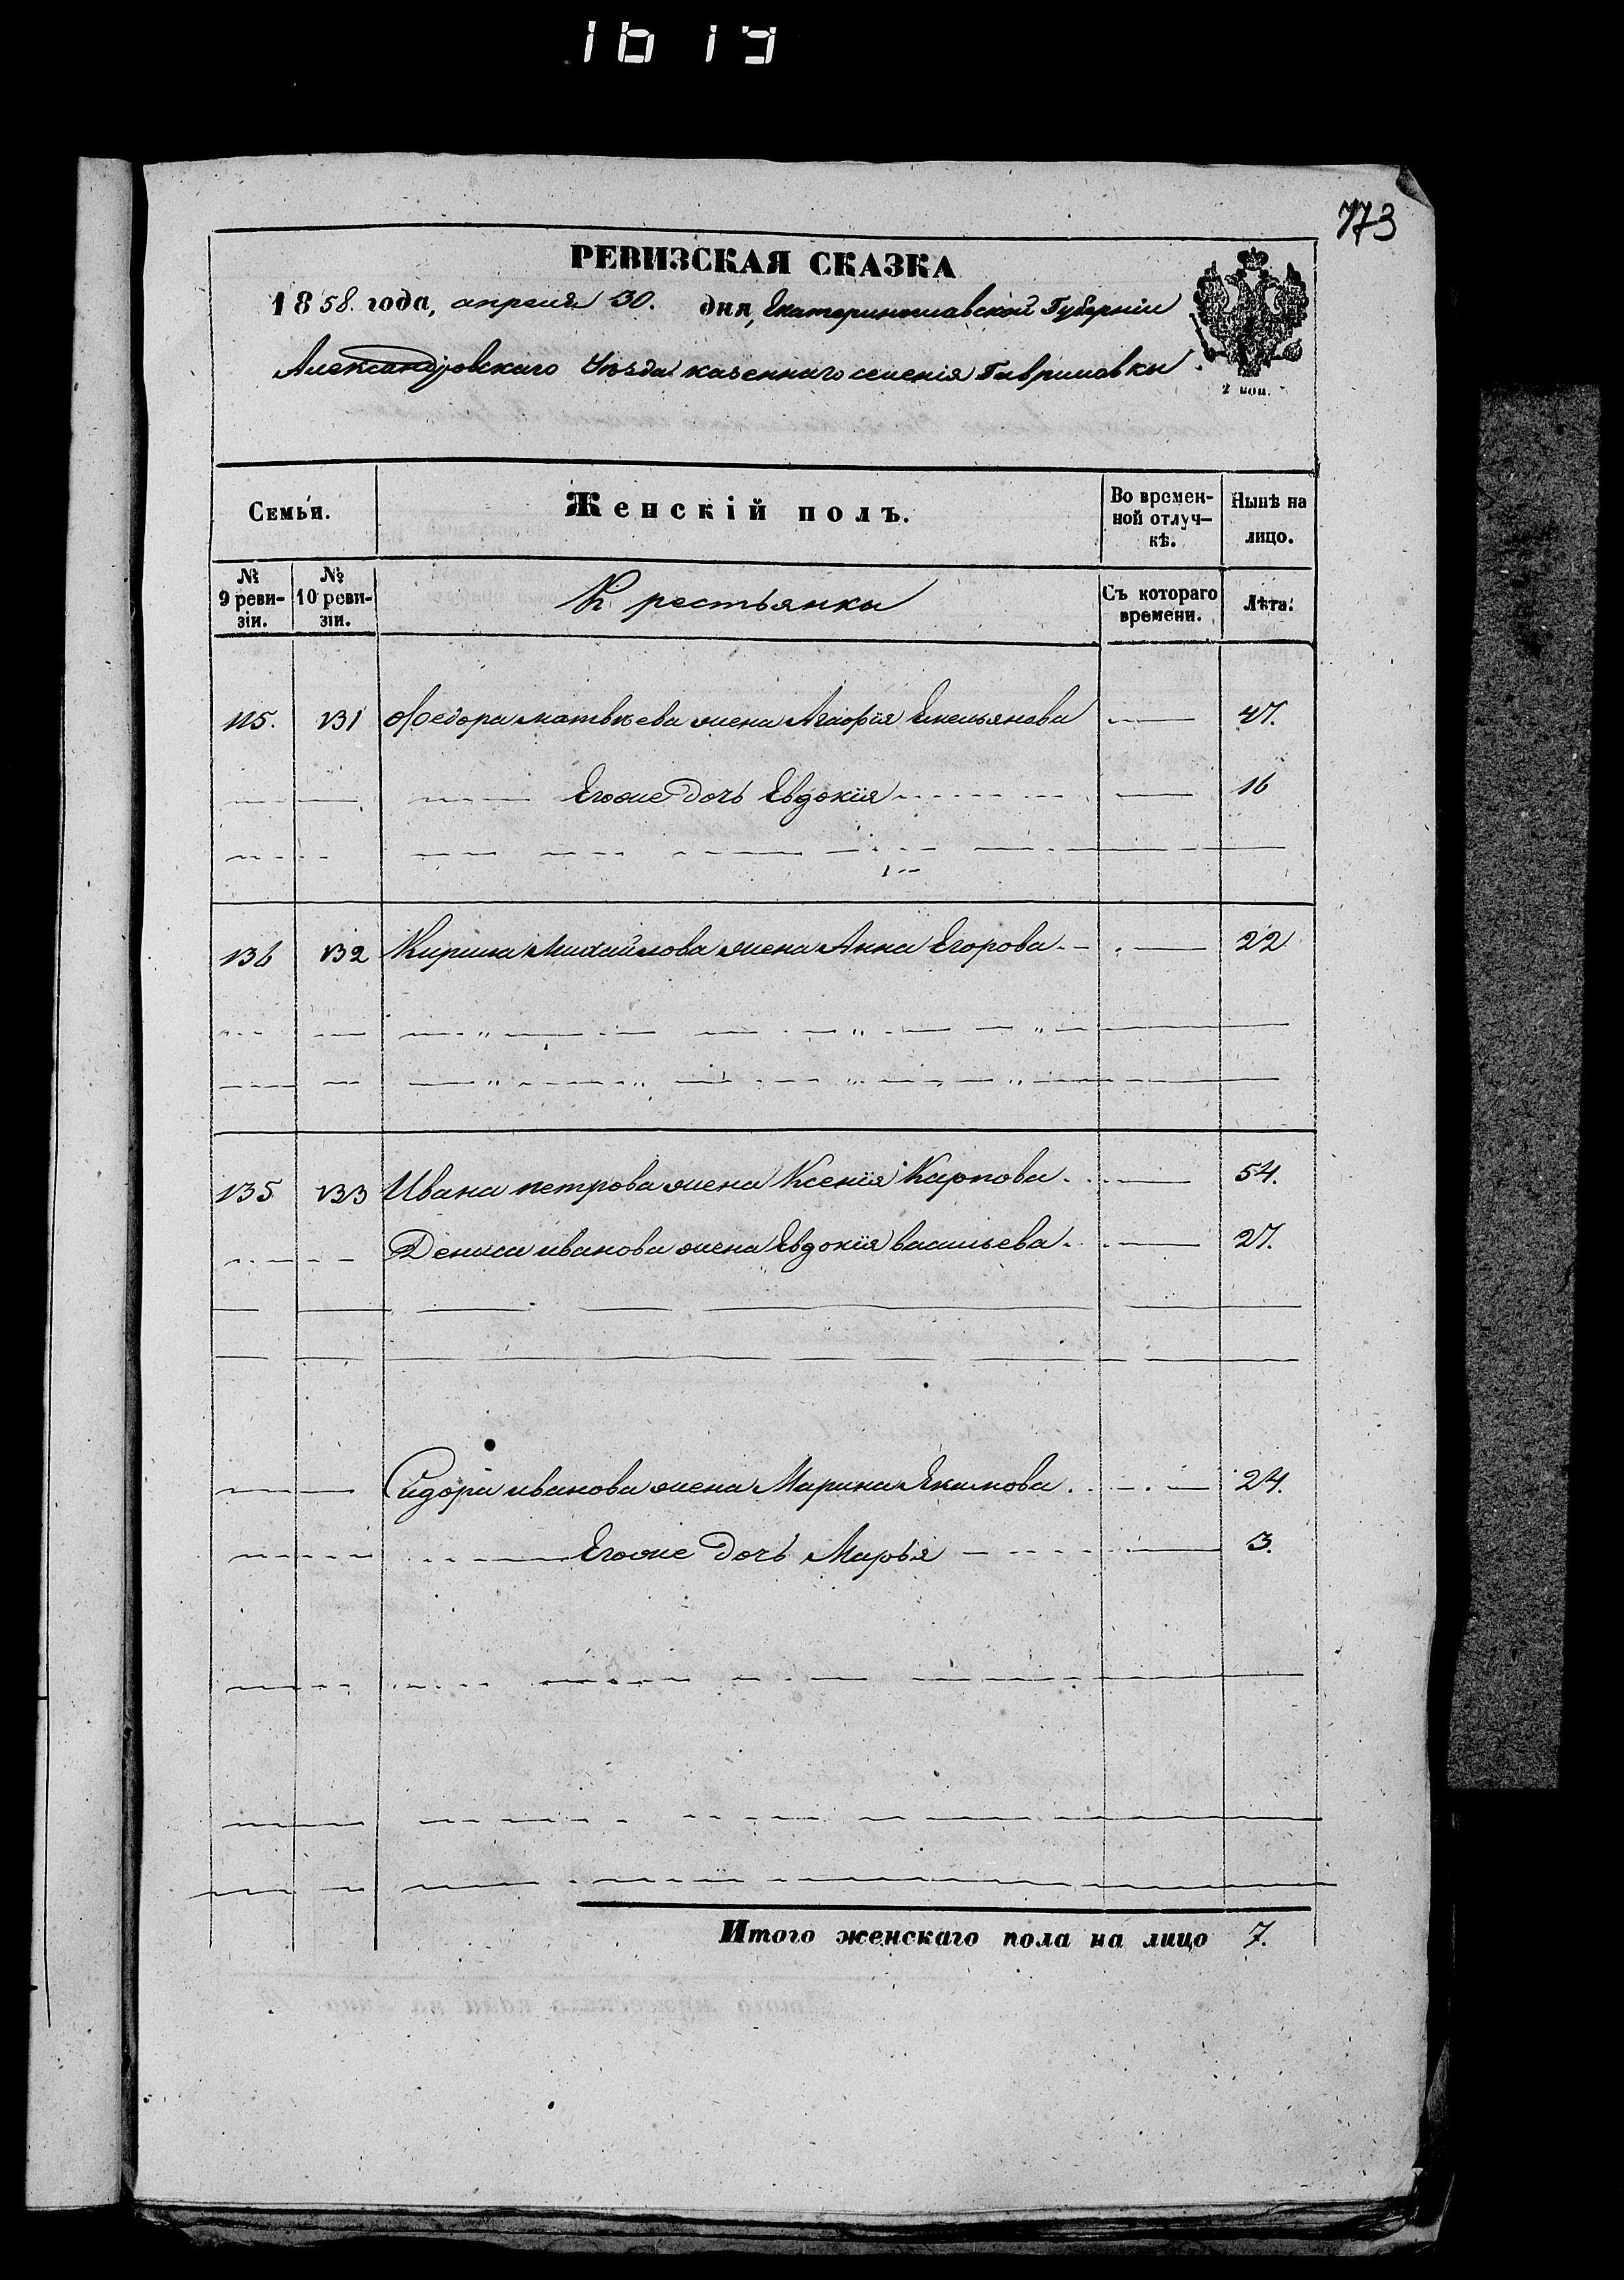 1619
773
РЕВИЗСКАЯ СКАЗКА
1858. года, апреля 30. дня, Екатеринославской Губерніи
Александровскаго Уѣзда казеннаго селенія Гавриловки.
2 коп.
Семьи.
Женскій полъ.
Во времен-
ной отлуч-
кѣ.
Нынѣ на
лицо.
№
9 реви-
зіи.
№
10 реви-
зіи.
Крестьянки
Съ котораго
времени.
Лѣта.
115. 131 Федора матвѣева жена Агафія Емельянова 47.
Егоже дочь Евдокія 16
136 132 Кирила Михайлова жена Анна Егорова 22
135 133 Ивана петрова жена Ксенія Карпова. 54.
Дениса иванова жена Евдокія васильева. 27.
Сидора иванова жена Марина Якимова. 24.
Егоже дочь Марья 3.
Итого женскаго пола на лицо 7.